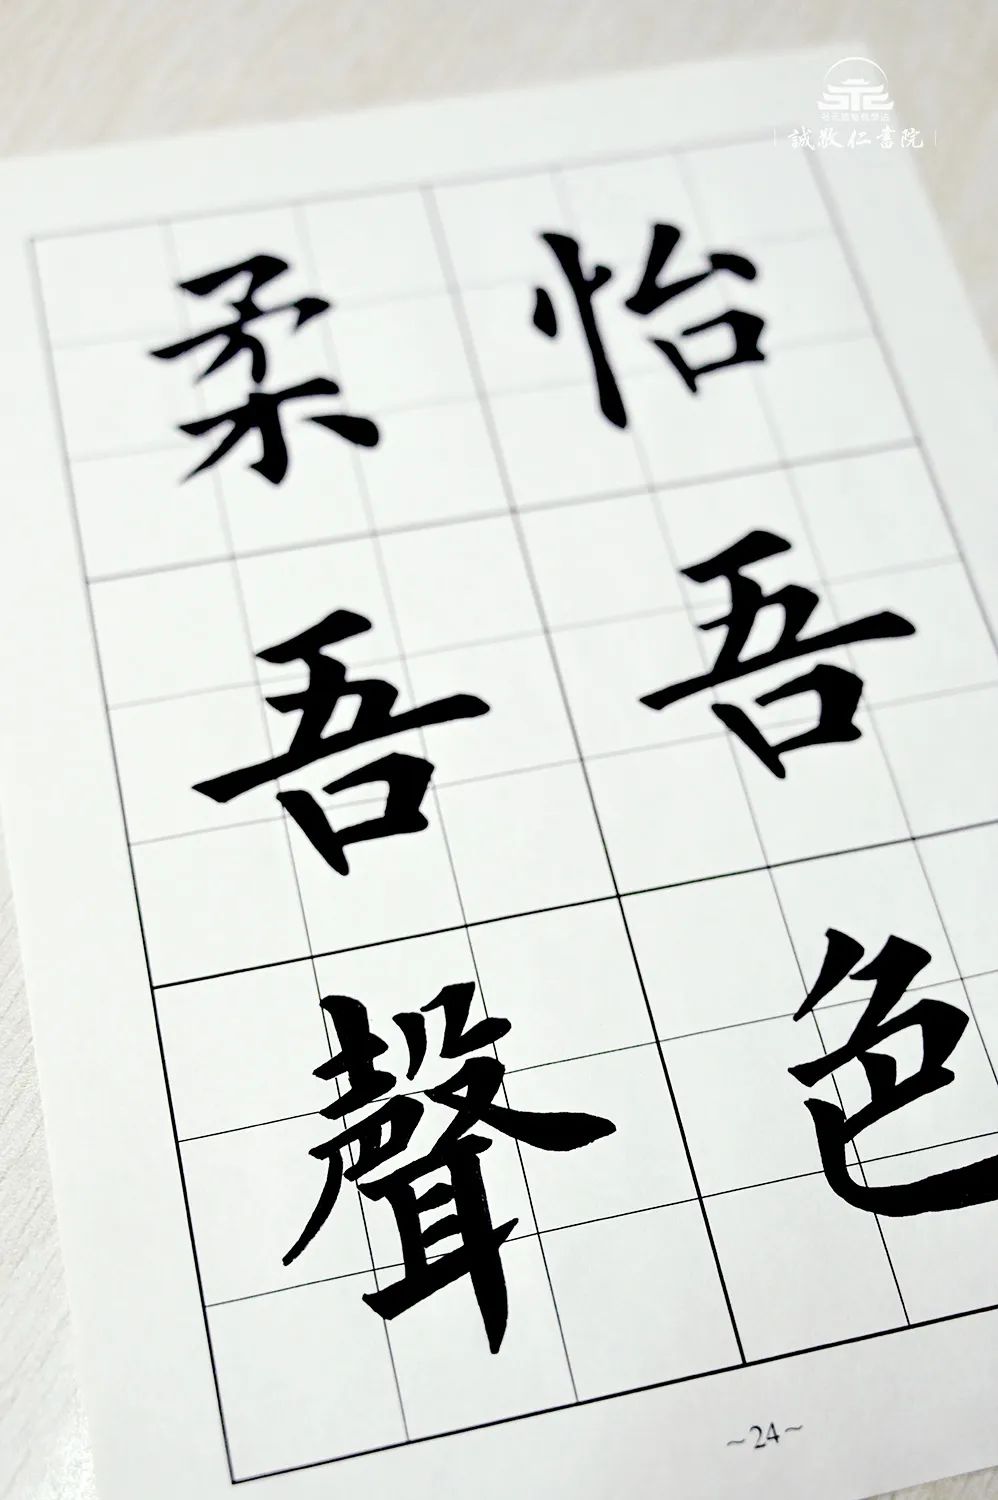 怡吾色
柔吾聲
~24~
誠敬仁書院